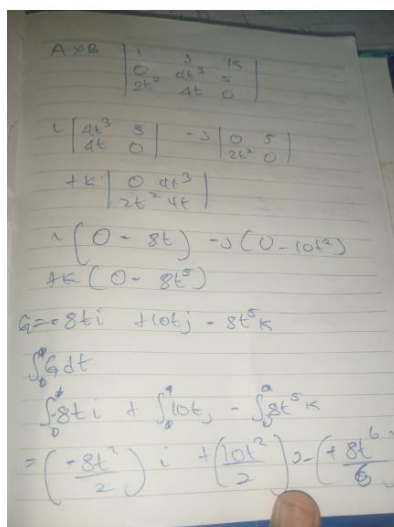 A x B | i j k |
| 0 4t³ 5 |
| 2t² 4t 0 |
i | 4t³ 5 | - j | 0 5 |
| 4t 0 | | 2t² 0 |
+ k | 0 4t³ |
| 2t² 4t |
i ( 0 - 8t ) - j ( 0 - 10t² )
+ k ( 0 - 8t⁵ )
G = - 8ti + 10tj - 8t⁵k
Gdt
8ti + 10tj - 8t⁵k
= ( -8t² / 2 ) i + ( 10t² / 2 ) - ( + 8t⁶ / 6